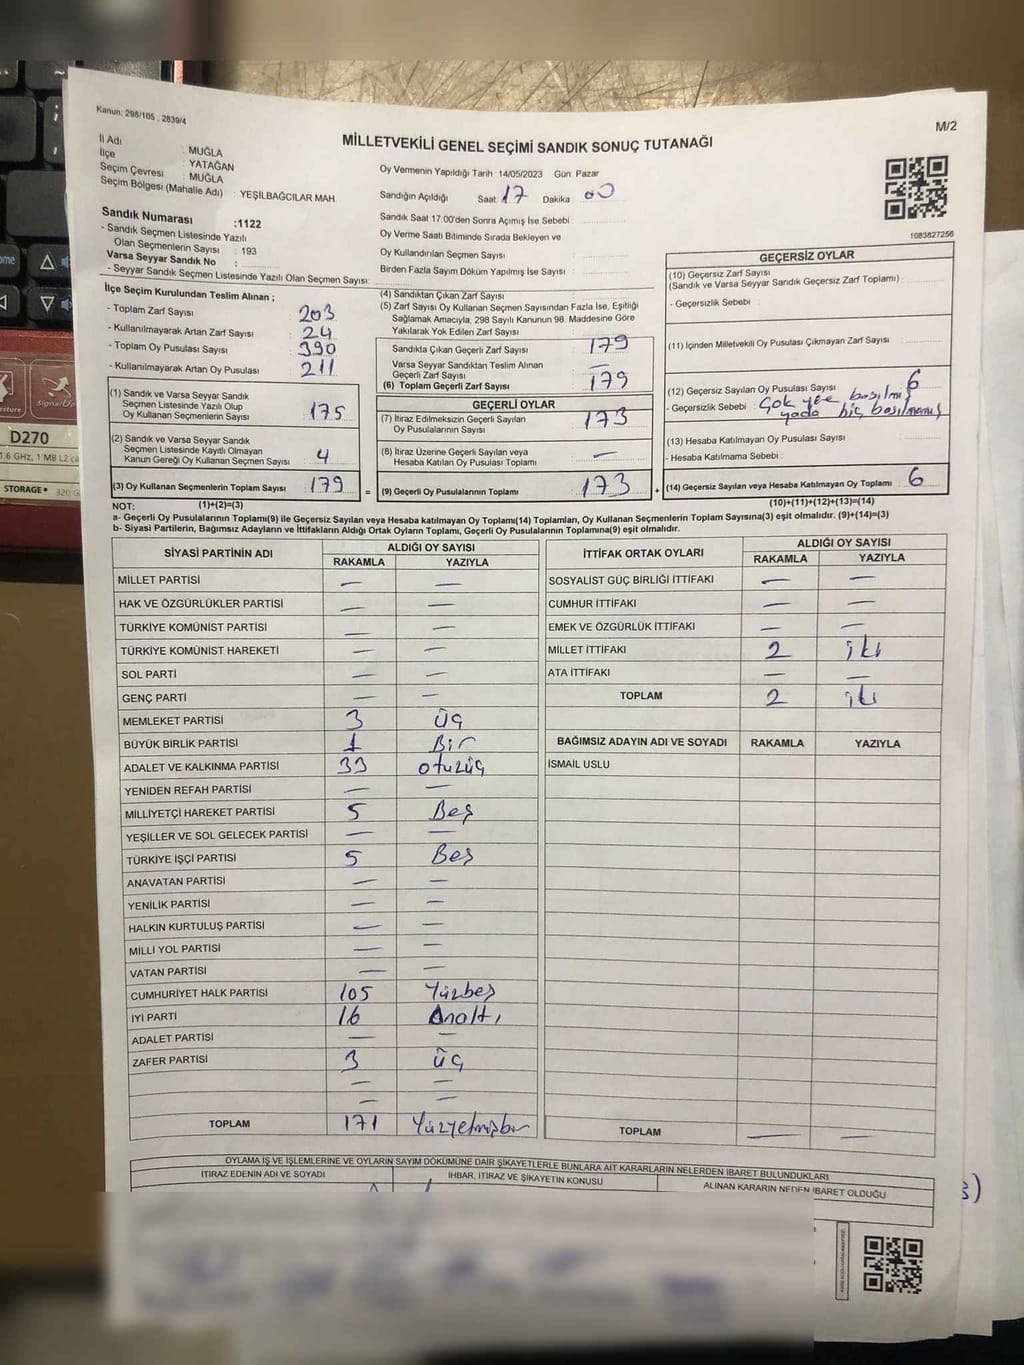 Kanun: 298/105 , 2839/4
M/2
MİLLETVEKİLİ GENEL SEÇİMİ SANDIK SONUÇ TUTANAĞI
İl Adı : MUĞLA
İlçe : YATAĞAN
Seçim Çevresi : MUĞLA
Seçim Bölgesi (Mahalle Adı) : YEŞİLBAĞCILAR MAH.
Sandık Numarası :1122
- Sandık Seçmen Listesinde Yazılı
Olan Seçmenlerin Sayısı : 193
Varsa Seyyar Sandık No :
- Seyyar Sandık Seçmen Listesinde Yazılı Olan Seçmen Sayısı:
Oy Vermenin Yapıldığı Tarih :14/05/2023 Gün: Pazar
Sandığın Açıldığı Saat 17 Dakika 00
Sandık Saat 17:00'den Sonra Açımış İse Sebebi
Oy Verme Saati Bitiminde Sırada Bekleyen ve
Oy Kullandırılan Seçmen Sayısı
Birden Fazla Sayım Döküm Yapılmış İse Sayısı
1083827256
İlçe Seçim Kurulundan Teslim Alınan ;
- Toplam Zarf Sayısı : 203
- Kullanılmayarak Artan Zarf Sayısı : 24
- Toplam Oy Pusulası Sayısı : 390
- Kullanılmayarak Artan Oy Pusulası : 211
(1) Sandık ve Varsa Seyyar Sandık
Seçmen Listesinde Yazılı Olup
Oy Kullanan Seçmenlerin Sayısı : 175
(2) Sandık ve Varsa Seyyar Sandık
Seçmen Listesinde Kayıtlı Olmayan
Kanun Gereği Oy Kullanan Seçmen Sayısı : 4
(3) Oy Kullanan Seçmenlerin Toplam Sayısı : 179
(4) Sandıktan Çıkan Zarf Sayısı
(5) Zarf Sayısı Oy Kullanan Seçmen Sayısından Fazla İse, Eşitliği
Sağlamak Amacıyla, 298 Sayılı Kanunun 98. Maddesine Göre
Yakılarak Yok Edilen Zarf Sayısı
Sandıkta Çıkan Geçerli Zarf Sayısı 179
Varsa Seyyar Sandıktan Teslim Alınan
Geçerli Zarf Sayısı —
(6) Toplam Geçerli Zarf Sayısı 179
GEÇERLİ OYLAR
(7) İtiraz Edilmeksizin Geçerli Sayılan
Oy Pusulalarının Sayısı 173
(8) İtiraz Üzerine Geçerli Sayılan veya
Hesaba Katılan Oy Pusulası Toplamı —
= (9) Geçerli Oy Pusulalarının Toplamı 173
GEÇERSİZ OYLAR
(10) Geçersiz Zarf Sayısı
(Sandık ve Varsa Seyyar Sandık Geçersiz Zarf Toplamı)
- Geçersizlik Sebebi :
(11) İçinden Milletvekili Oy Pusulası Çıkmayan Zarf Sayısı
(12) Geçersiz Sayılan Oy Pusulası Sayısı 6
- Geçersizlik Sebebi : Çok yere basılmış
yada hiç basılmamış
(13) Hesaba Katılmayan Oy Pusulası Sayısı
- Hesaba Katılmama Sebebi :
+ (14) Geçersiz Sayılan veya Hesaba Katılmayan Oy Toplamı 6
NOT: (1)+(2)=(3)
(10)+(11)+(12)+(13)=(14)
a- Geçerli Oy Pusulalarının Toplamı(9) ile Geçersiz Sayılan veya Hesaba katılmayan Oy Toplamı(14) Toplamları, Oy Kullanan Seçmenlerin Toplam Sayısına(3) eşit olmalıdır. (9)+(14)=(3)
b- Siyasi Partilerin, Bağımsız Adayların ve İttifakların Aldığı Ortak Oyların Toplamı, Geçerli Oy Pusulalarının Toplamına(9) eşit olmalıdır.
SİYASİ PARTİNİN ADI ALDIĞI OY SAYISI
RAKAMLA YAZIYLA
MİLLET PARTİSİ — —
HAK VE ÖZGÜRLÜKLER PARTİSİ — —
TÜRKİYE KOMÜNİST PARTİSİ — —
TÜRKİYE KOMÜNİST HAREKETİ — —
SOL PARTİ — —
GENÇ PARTİ — —
MEMLEKET PARTİSİ 3 üç
BÜYÜK BİRLİK PARTİSİ 1 Bir
ADALET VE KALKINMA PARTİSİ 33 otuzüç
YENİDEN REFAH PARTİSİ — —
MİLLİYETÇİ HAREKET PARTİSİ 5 Beş
YEŞİLLER VE SOL GELECEK PARTİSİ — —
TÜRKİYE İŞÇİ PARTİSİ 5 Beş
ANAVATAN PARTİSİ — —
YENİLİK PARTİSİ — —
HALKIN KURTULUŞ PARTİSİ — —
MİLLİ YOL PARTİSİ — —
VATAN PARTİSİ — —
CUMHURİYET HALK PARTİSİ 105 Yüzbeş
İYİ PARTİ 16 Onaltı
ADALET PARTİSİ — —
ZAFER PARTİSİ 3 üç
— —
— —
TOPLAM 171 Yüzyetmişbir
İTTİFAK ORTAK OYLARI ALDIĞI OY SAYISI
RAKAMLA YAZIYLA
SOSYALİST GÜÇ BİRLİĞİ İTTİFAKI — —
CUMHUR İTTİFAKI — —
EMEK VE ÖZGÜRLÜK İTTİFAKI — —
MİLLET İTTİFAKI 2 iki
ATA İTTİFAKI — —
TOPLAM 2 iki
BAĞIMSIZ ADAYIN ADI VE SOYADI RAKAMLA YAZIYLA
İSMAİL USLU
TOPLAM — —
OYLAMA İŞ VE İŞLEMLERİNE VE OYLARIN SAYIM DÖKÜMÜNE DAİR ŞİKAYETLERLE BUNLARA AİT KARARLARIN NELERDEN İBARET BULUNDUKLARI
İTİRAZ EDENİN ADI VE SOYADI
İHBAR, İTİRAZ VE ŞİKAYETİN KONUSU
ALINAN KARARIN NEDEN İBARET OLDUĞU
D270
STORAGE